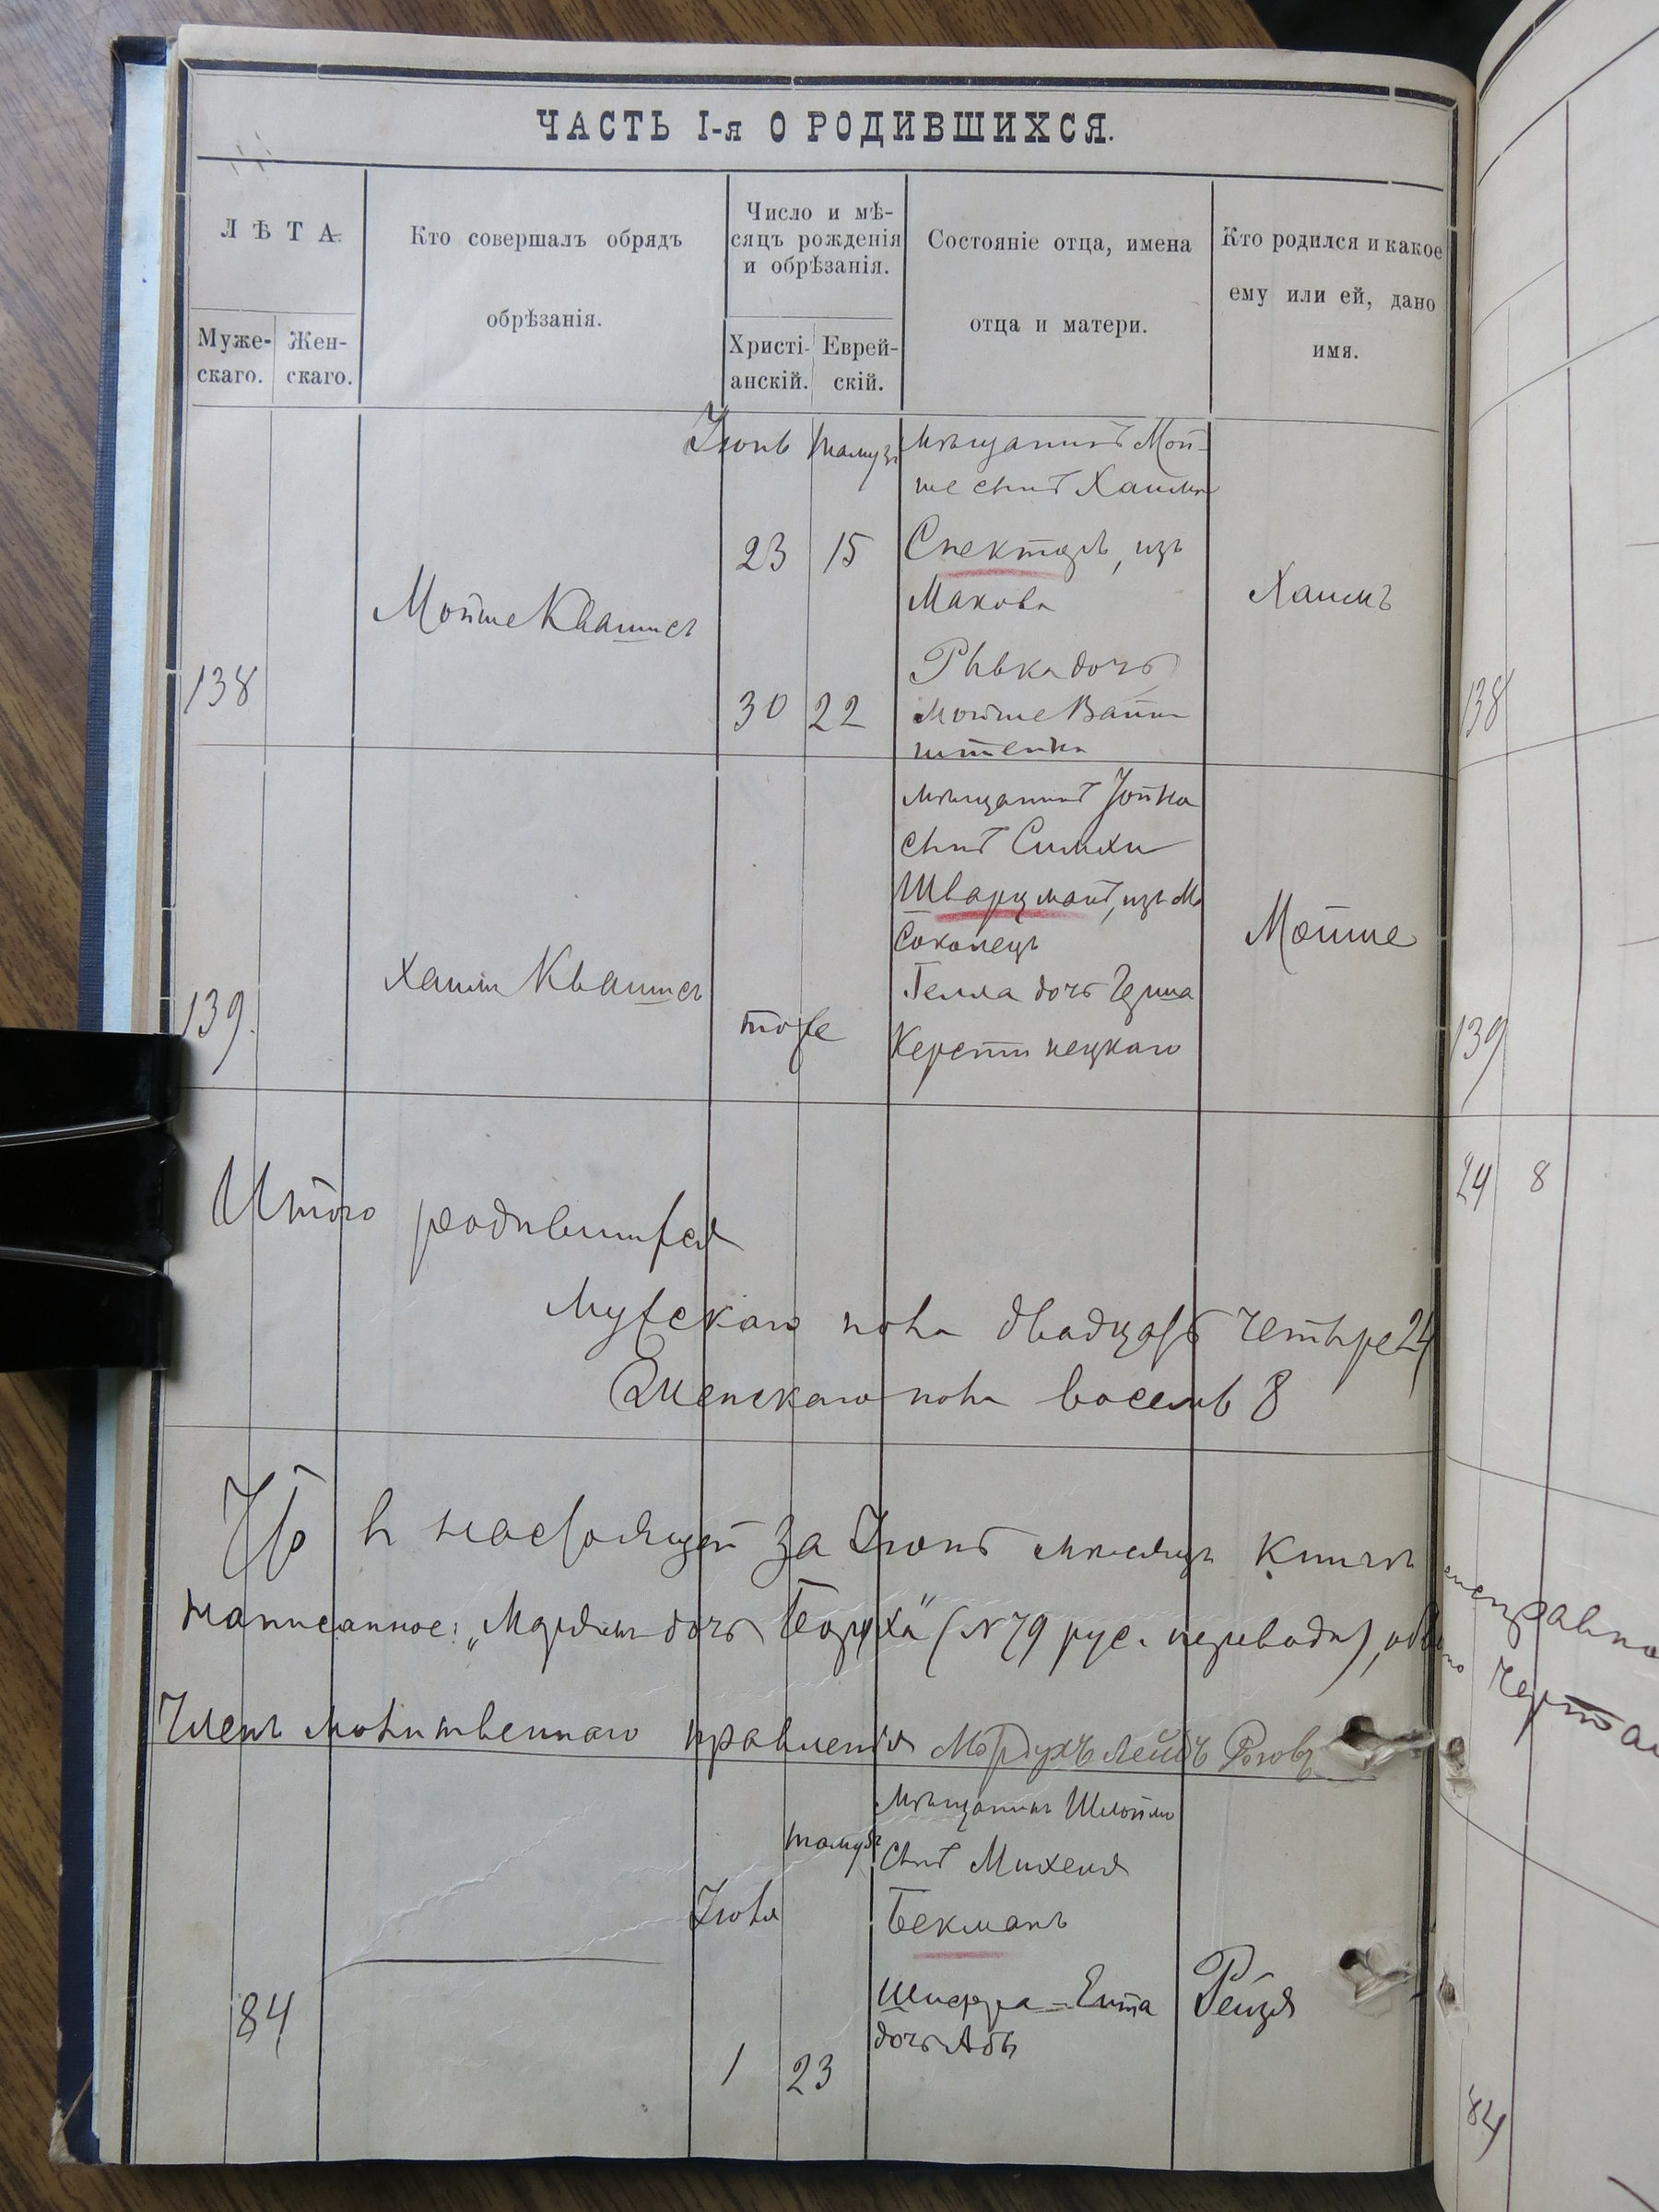 ЧАСТЬ I-я О РОДИВШИХСЯ.
ЛѢТА.
Муже-
скаго.
Жен-
скаго.
Кто совершалъ обрядъ
обрѣзанія.
Число и мѣ-
сяцъ рожденія
и обрѣзанія.
Христі-
анскій.
Еврей-
скій.
Состояніе отца, имена
отца и матери.
Кто родился и какое
ему или ей, дано
имя.
138
Мойше Квашисъ
Іюнь Тамузъ
23 15
30 22
мѣщанинъ Мой-
ше сынъ Хаима
Спекторъ, изъ
Макова
Рывка дочь
Мойше Вайн
штейна
Хаимъ
139.
Хаим Квашисъ
тоже
мѣщанинъ Іойна
сынъ Симхи
Шварцманъ, изъ м.
Соколецъ
Гелла дочь Герша
Мойше
Итого родившихся
Мужскаго пола двадцать четыре 24
Женскаго пола восемь 8
Что в настоящей за Іюнь мѣсяцъ книгѣ
написанное: „Маріям дочь Боруха" (№ 79 рус. перевода),
Членъ молитвеннаго правленія Мордухъ Лейбъ
84
Іюля
Тамузъ
1 23
Мѣщанинъ Шлойма
сынъ Михеля
Бекманъ
Шифра=Ента
дочь Абы
Рейзя
138
139
24 8
84